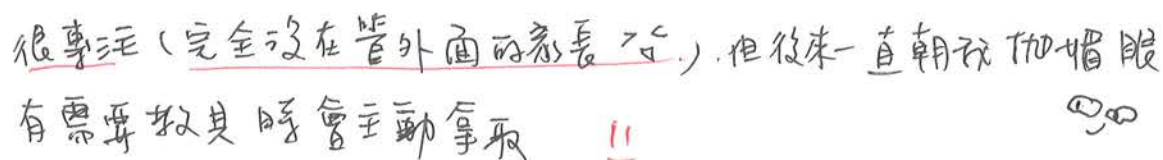 很專注(完全沒在管外面的家長 > <),但後來一直朝我拋媚眼
有需要教具時會主動拿取 !!